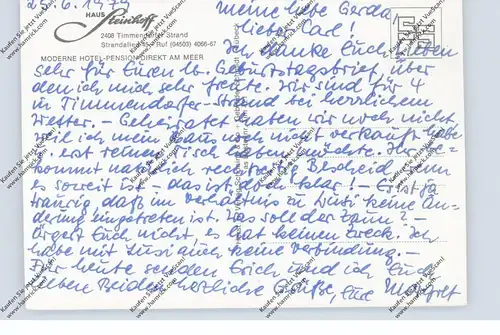 25.6.1979
HAUS
Steinhoff
2408 Timmendorfer Strand
Strandallee Ruf (04503) 4066-67
MODERNE HOTEL-PENSION DIREKT AM MEER
Meine liebe Gerda,
lieber Carl!
Ich danke Euch Lieben
sehr für Euren lb. Geburtstagsbrief, über
den ich mich sehr freute. Wir sind für 4
in Timmendorfer-Strand bei herrlichem
Wetter. – Geheiratet haben wir noch nicht
weil ich mein Haus noch nicht verkauft habe
u. erst reinen Tisch haben möchte. Ihr be-
kommt natürlich rechtzeitig Bescheid, wenn
es soweit ist – das ist doch klar! – Es ist ja
traurig, daß im Verhältnis zu Lusi keine Än-
derung eingetreten ist. Was soll der Zaun? –
Ärgert Euch nicht, es hat keinen Zweck. Ich
habe mit Lusi auch keine Verbindung. –
Für heute senden Erich und ich Euch
lieben Beiden herzliche Grüße, Eure Margret